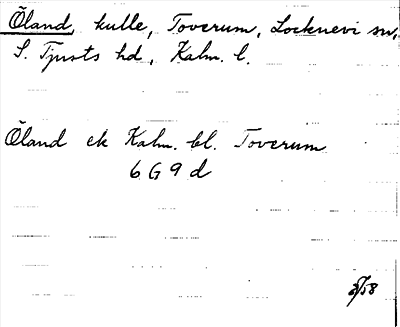 Öland, kulle, Toverum, Locknevi sn,
S. Tjusts hd, Kalm. l.
Öland ek Kalm. bl. Toverum
6 G 9 d